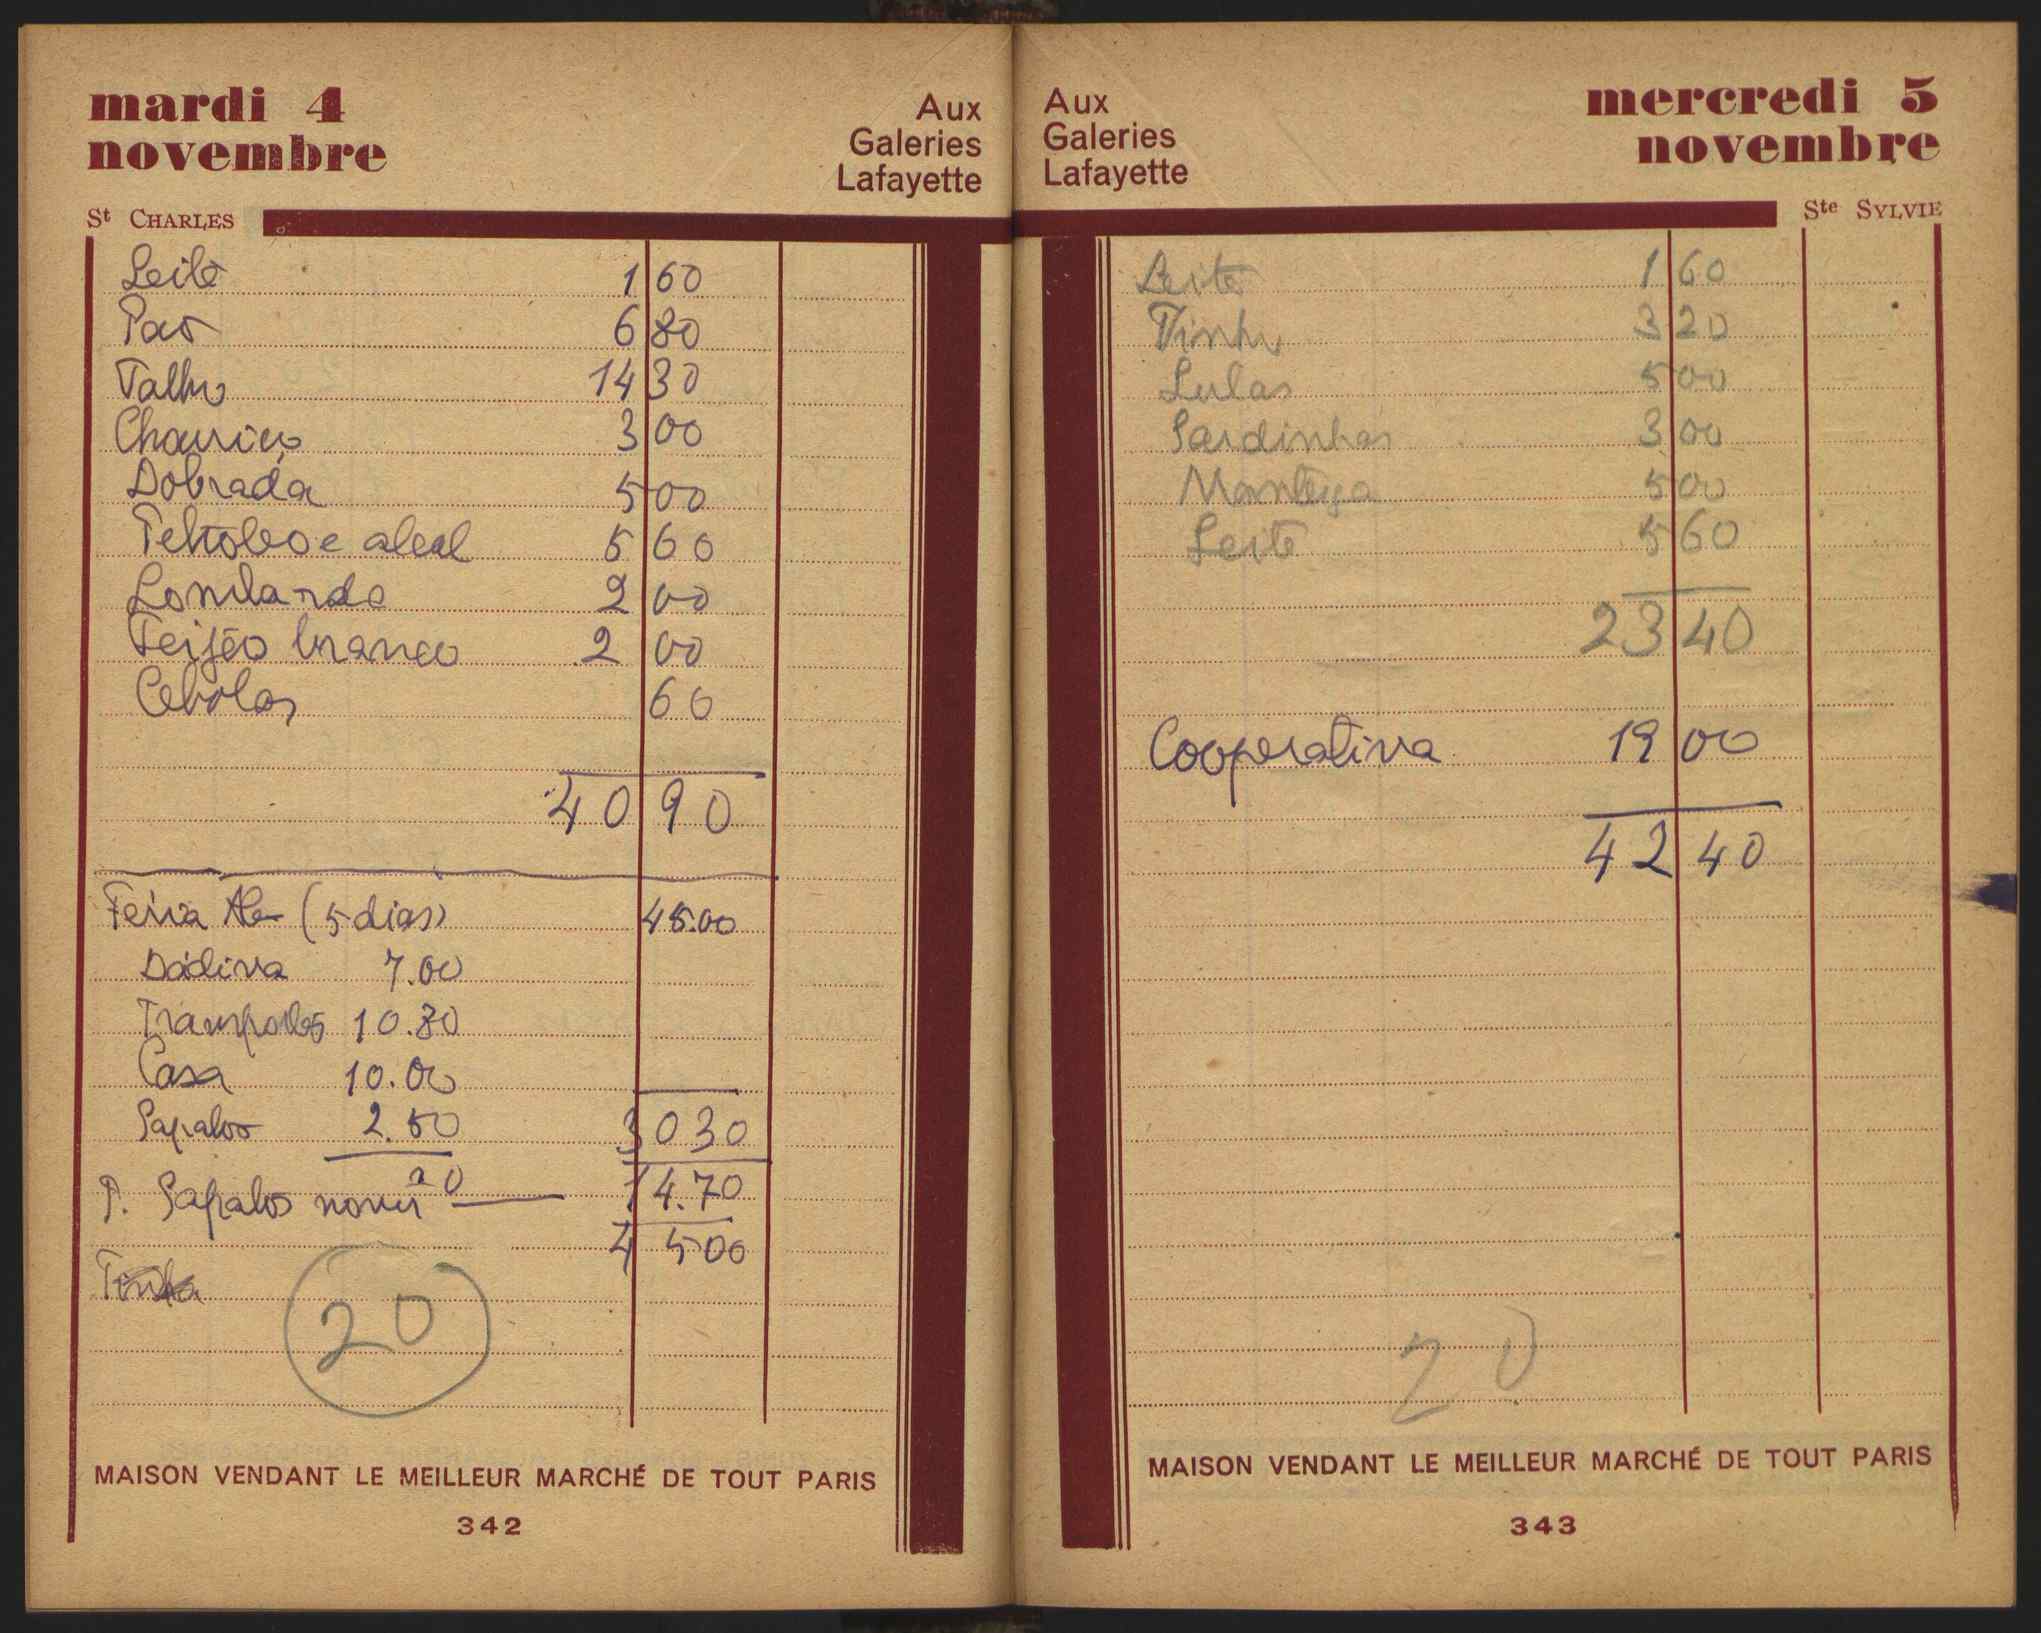 mardi 4
novembre
Aux
Galeries
Lafayette
St CHARLES
Leite 1 60
Pao 6 80
Talho 14 30
Chouriço 3 00
Dobrada 5 00
Petroleo e alcol 5 60
Lombarda 2 00
Feijão branco 2 00
Cebolas 60
40 90
Feria (5 dias) 45.00
Dádiva 7.00
Transportes 10.80
Casa 10.00
Sapatos 2.50 30 30
P. Sapatos 20 14.70
4 500
20
MAISON VENDANT LE MEILLEUR MARCHÉ DE TOUT PARIS
342
Aux
Galeries
Lafayette
mercredi 5
novembre
Ste SYLVIE
Leite 1 60
Vinho 3 20
Lulas 5 00
Sardinhas 3 00
Manteiga 5 00
Leite 5 60
23 40
Cooperativa 19 00
42 40
20
MAISON VENDANT LE MEILLEUR MARCHÉ DE TOUT PARIS
343